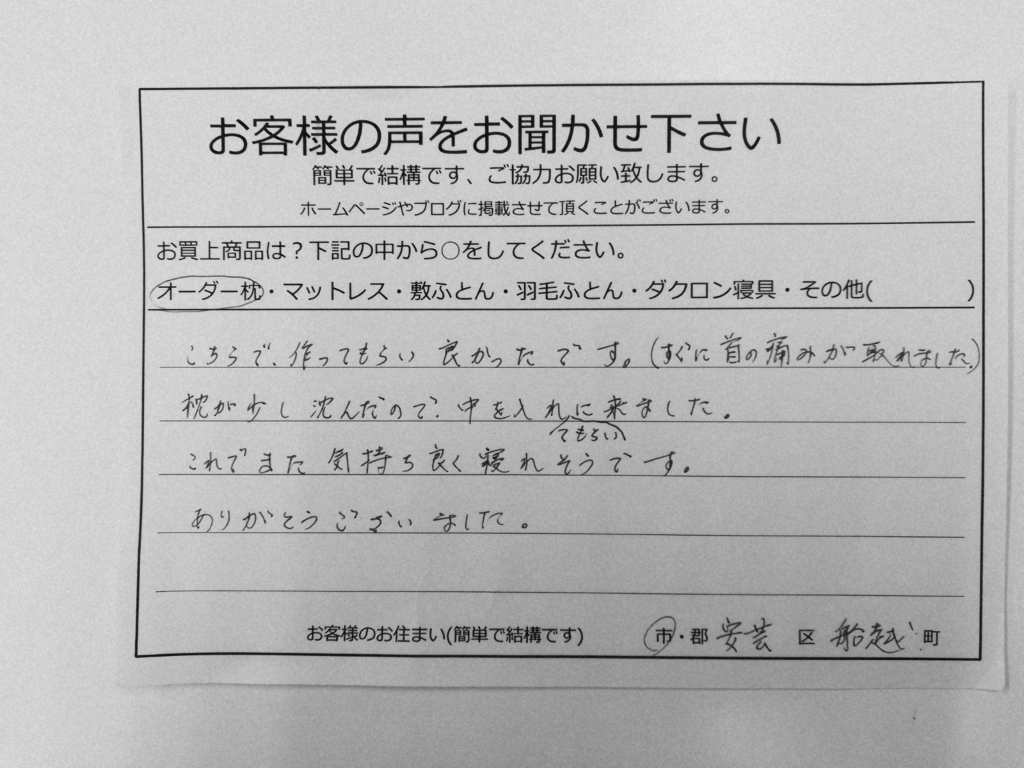 お客様の声をお聞かせ下さい
簡単で結構です、ご協力お願い致します。
ホームページやブログに掲載させて頂くことがございます。
お買上商品は？下記の中から○をしてください。
オーダー枕・マットレス・敷ふとん・羽毛ふとん・ダクロン寝具・その他( )
こちらで、作ってもらい 良かったです。(すぐに首の痛みが取れました。)
枕が少し沈んだので、中を入れに来ました。
てもらい
これでまた気持ち良く寝れそうです。
ありがとうございました。
お客様のお住まい(簡単で結構です) 市・郡 安芸 区 船越 町